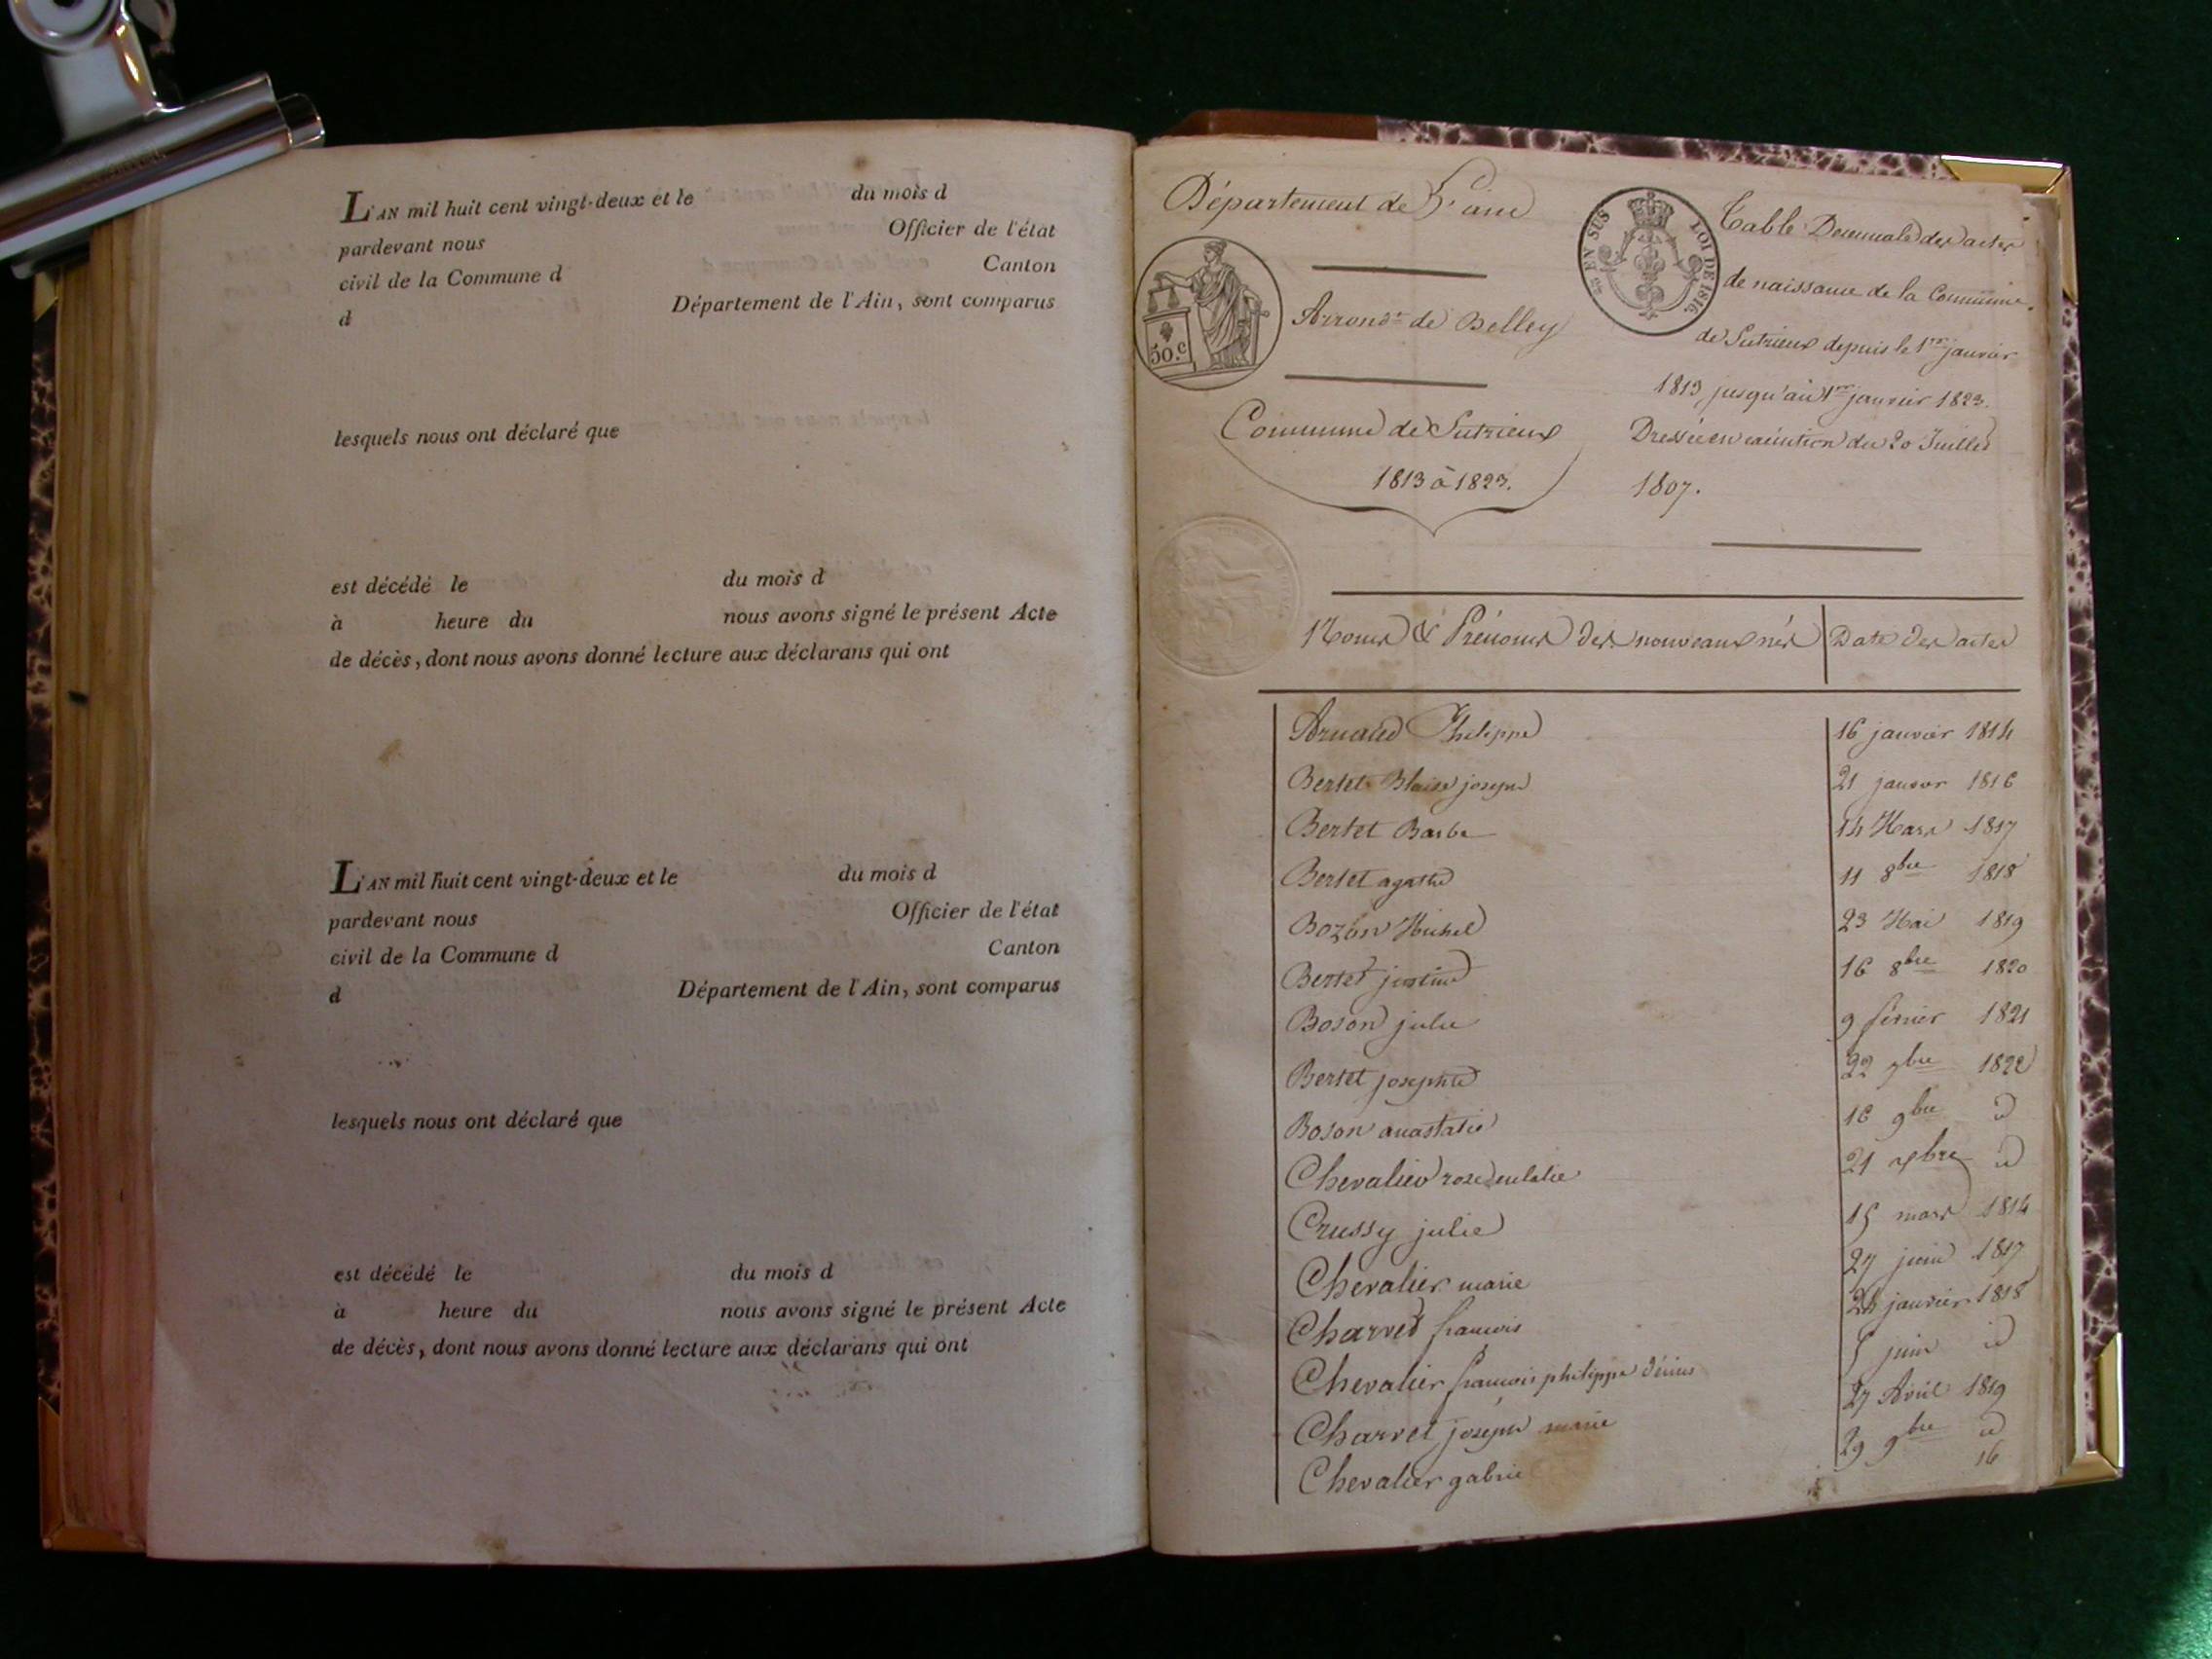 L'AN mil huit cent vingt-deux et le du mois d
pardevant nous Officier de l'état
civil de la Commune d Canton
d Département de l'Ain, sont comparus
lesquels nous ont déclaré que
est décédé le du mois d
à heure du nous avons signé le présent Acte
de décès, dont nous avons donné lecture aux déclarans qui ont
L'AN mil huit cent vingt-deux et le du mois d
pardevant nous Officier de l'état
civil de la Commune d Canton
d Département de l'Ain, sont comparus
lesquels nous ont déclaré que
est décédé le du mois d
à heure du nous avons signé le présent Acte
de décès, dont nous avons donné lecture aux déclarans qui ont
Département de l'ain
50.c
Arrondt de Belley
Commune de Sutrieux
1813 à 1823.
EN SUS LOI DE 1816
Table Décennale des actes
de naissance de la Commune
de Sutrieux depuis le 1er janvier
1813 jusqu'au 1er janvier 1823.
Dressée en exécution du 20 Juillet
1807.
Noms & Prénoms des nouveaux nés Date des actes
Arnaud Philippe 16 janvier 1814
Bertet Blaise joseph 21 janvier 1816
Bertet Barbe 14 Mars 1817
Bertet agathe 11 8bre 1818
Bozon Michel 23 Mai 1819
Bertet justine 16 8bre 1820
Boson julie 9 février 1821
Bertet josephte 22 7bre 1822
Boson anastasie 16 9bre id
Chevalier rose eulalie 21 xbre id
Crussy julie 15 mars 1814
Chevalier marie 27 juin 1817
Charvet francois 24 janvier 1818
Chevalier francois philippe dénis 5 juin id
Charvet joseph marie 27 Avril 1819
Chevalier gabrie 29 9bre id
16